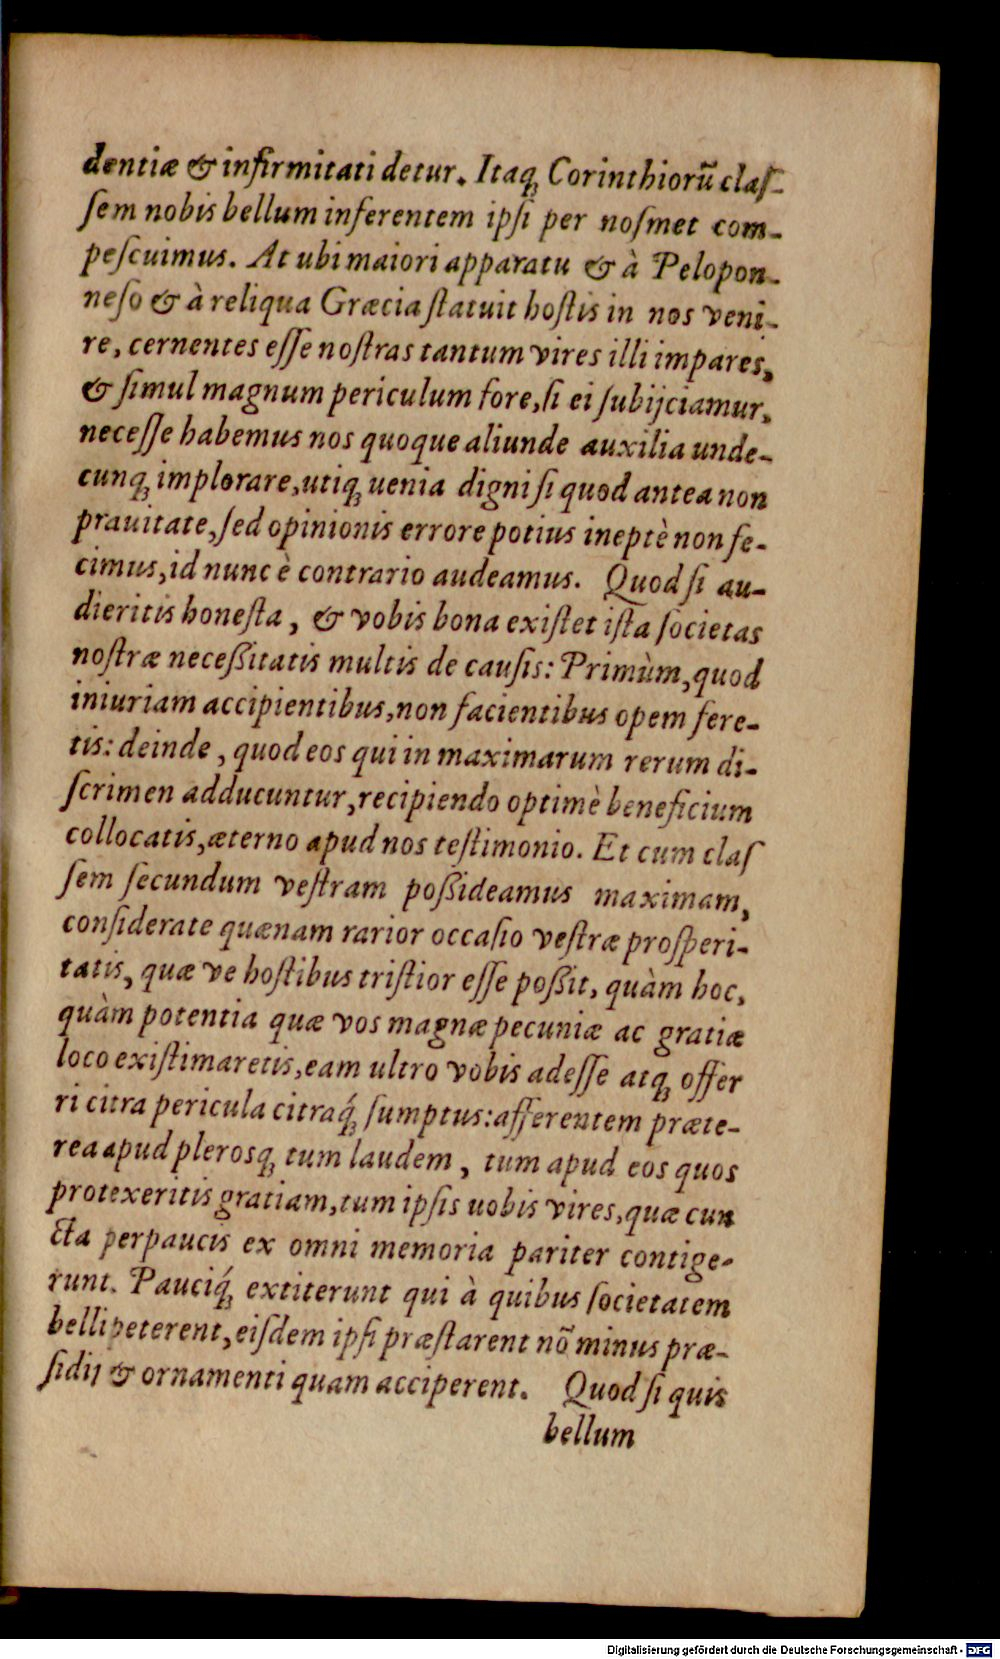 dentiæ & infirmitati detur. Itaqꝫ Corinthiorũ claſ-
ſem nobis bellum inferentem ipſi per noſmet com-
peſcuimus. At ubi maiori apparatu & à Pelopon-
neſo & à reliqua Græcia ſtatuit hoſtis in nos veni-
re, cernentes eſſe noſtras tantum vires illi impares,
& ſimul magnum periculum fore, ſi ei ſubijciamur,
neceſſe habemus nos quoque aliunde auxilia unde-
cunqꝫ implorare, utiqꝫ uenia digni ſi quod antea non
prauitate, ſed opinionis errore potius ineptè non fe-
cimus, id nunc è contrario audeamus. Quod ſi au-
dieritis honeſta, & vobis bona exiſtet iſta ſocietas
noſtræ neceßitatis multis de cauſis: Primùm, quod
iniuriam accipientibus, non facientibus opem fere-
tis: deinde, quod eos qui in maximarum rerum di-
ſcrimen adducuntur, recipiendo optimè beneficium
collocatis, æterno apud nos teſtimonio. Et cum claſ
ſem ſecundum veſtram poßideamus maximam,
conſiderate quænam rarior occaſio veſtræ proſperi-
tatis, quæ ve hoſtibus triſtior eſſe poßit, quàm hoc,
quàm potentia quæ vos magnæ pecuniæ ac gratiæ
loco exiſtimaretis, eam ultro vobis adeſſe atqꝫ offer
ri citra pericula citraqꝫ́ ſumptus: afferentem præte-
rea apud plerosqꝫ tum laudem, tum apud eos quos
protexeritis gratiam, tum ipſis uobis vires, quæ cun
cta perpaucis ex omni memoria pariter contige-
runt. Pauciqꝫ́ extiterunt qui à quibus ſocietatem
belli peterent, eiſdem ipſi præſtarent nõ minus præ-
ſidij & ornamenti quam acciperent. Quod ſi quis
bellum
Digitalisierung gefördert durch die Deutsche Forschungsgemeinschaft - DFG